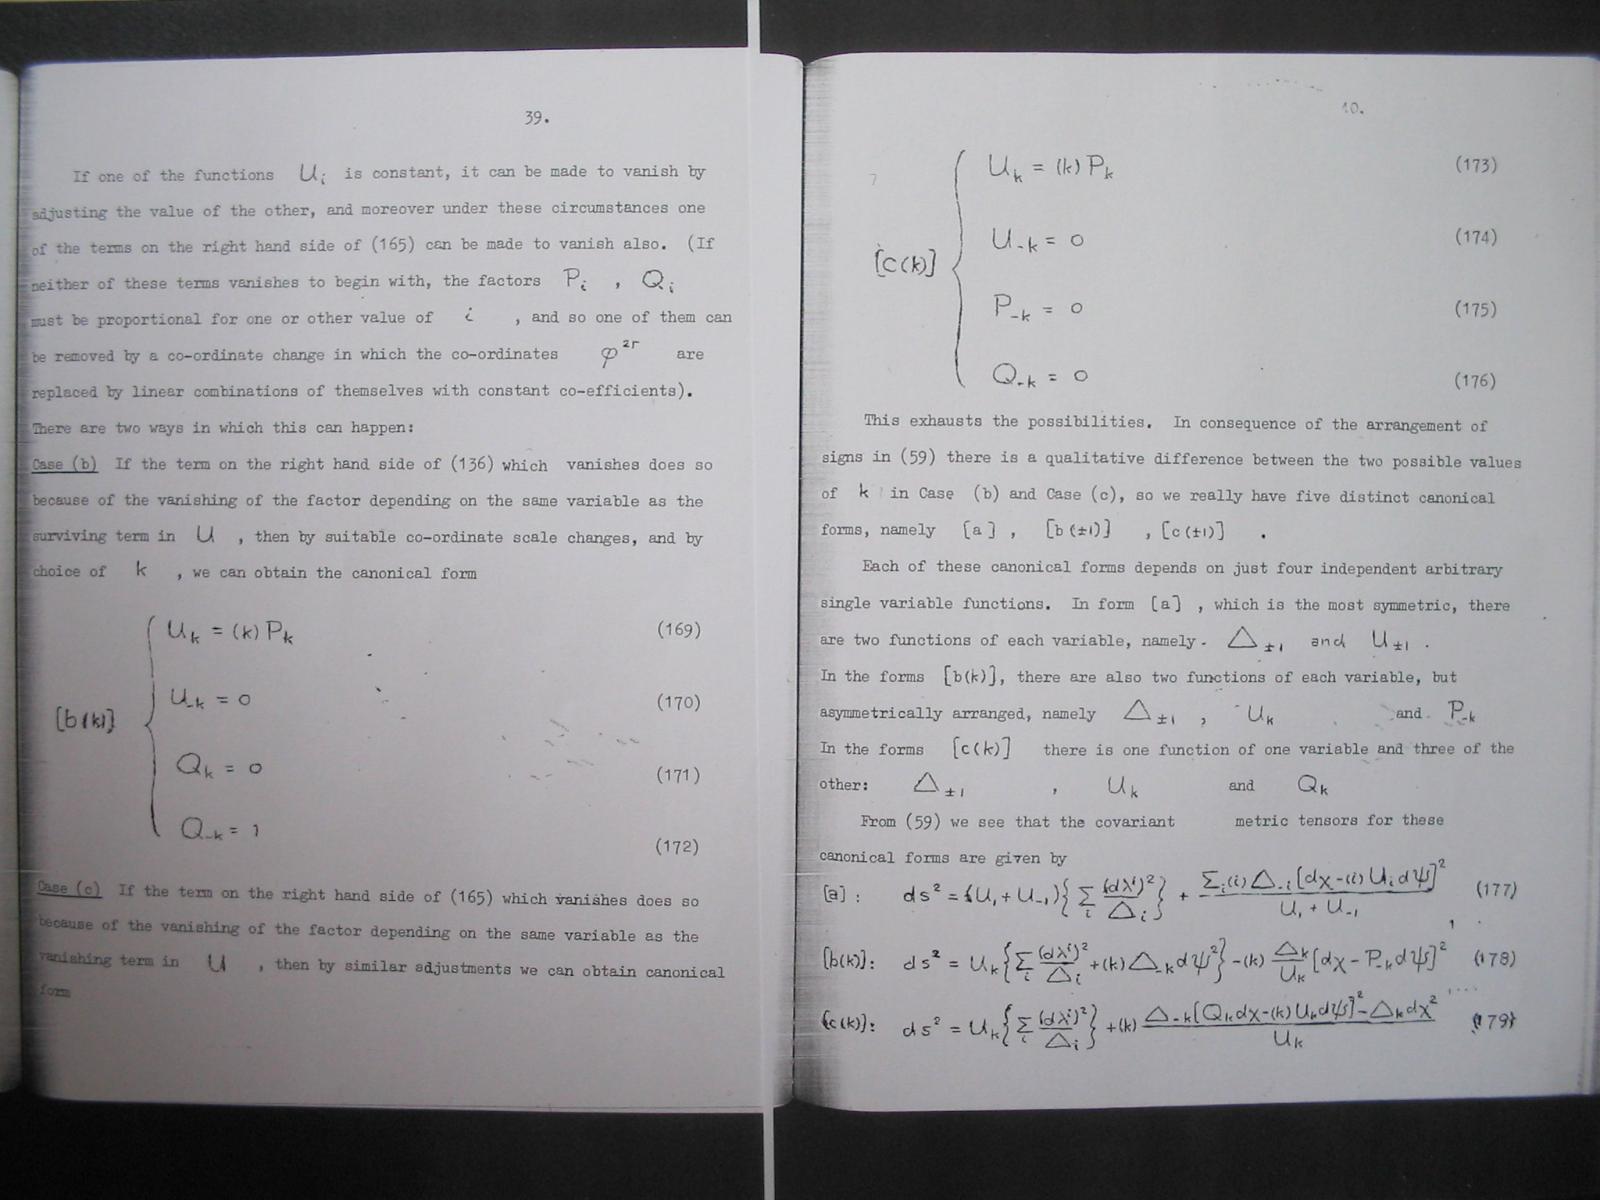 39.
If one of the functions U_i is constant, it can be made to vanish by
adjusting the value of the other, and moreover under these circumstances one
of the terms on the right hand side of (165) can be made to vanish also. (If
neither of these terms vanishes to begin with, the factors P_i , Q_i
must be proportional for one or other value of i , and so one of them can
be removed by a co-ordinate change in which the co-ordinates φ^{2r} are
replaced by linear combinations of themselves with constant co-efficients).
There are two ways in which this can happen:
Case (b) If the term on the right hand side of (136) which vanishes does so
because of the vanishing of the factor depending on the same variable as the
surviving term in U , then by suitable co-ordinate scale changes, and by
choice of k , we can obtain the canonical form
U_k = (k) P_k (169)
U_{-k} = 0 (170)
[b(k)]
Q_k = 0 (171)
Q_{-k} = 1 (172)
Case (c) If the term on the right hand side of (165) which vanishes does so
because of the vanishing of the factor depending on the same variable as the
vanishing term in U , then by similar adjustments we can obtain canonical
form
40.
U_k = (k) P_k (173)
U_{-k} = 0 (174)
[c(k)]
P_{-k} = 0 (175)
Q_{-k} = 0 (176)
This exhausts the possibilities. In consequence of the arrangement of
signs in (59) there is a qualitative difference between the two possible values
of k in Case (b) and Case (c), so we really have five distinct canonical
forms, namely [a] , [b(±1)] , [c(±1)] .
Each of these canonical forms depends on just four independent arbitrary
single variable functions. In form [a] , which is the most symmetric, there
are two functions of each variable, namely Δ_{±1} and U_{±1} .
In the forms [b(k)], there are also two functions of each variable, but
asymmetrically arranged, namely Δ_{±1} , U_k and P_{-k}
In the forms [c(k)] there is one function of one variable and three of the
other: Δ_{±1} , U_k and Q_k
From (59) we see that the covariant metric tensors for these
canonical forms are given by
[a] : ds² = (U_1 + U_{-1}){Σ_i (dλ^i)²/Δ_i} + Σ_i (i) Δ_{-i} [dχ-(i) U_i dψ]² / (U_1 + U_{-1}) (177)
[b(k)]: ds² = U_k {Σ_i (dλ^i)²/Δ_i + (k) Δ_{-k} dψ²} - (k) Δ_k/U_k [dχ - P_{-k} dψ]² (178)
[c(k)]: ds² = U_k {Σ_i (dλ^i)²/Δ_i} + (k) (Δ_{-k} [Q_k dχ-(k) U_k dψ]² - Δ_k dχ²) / U_k (179)